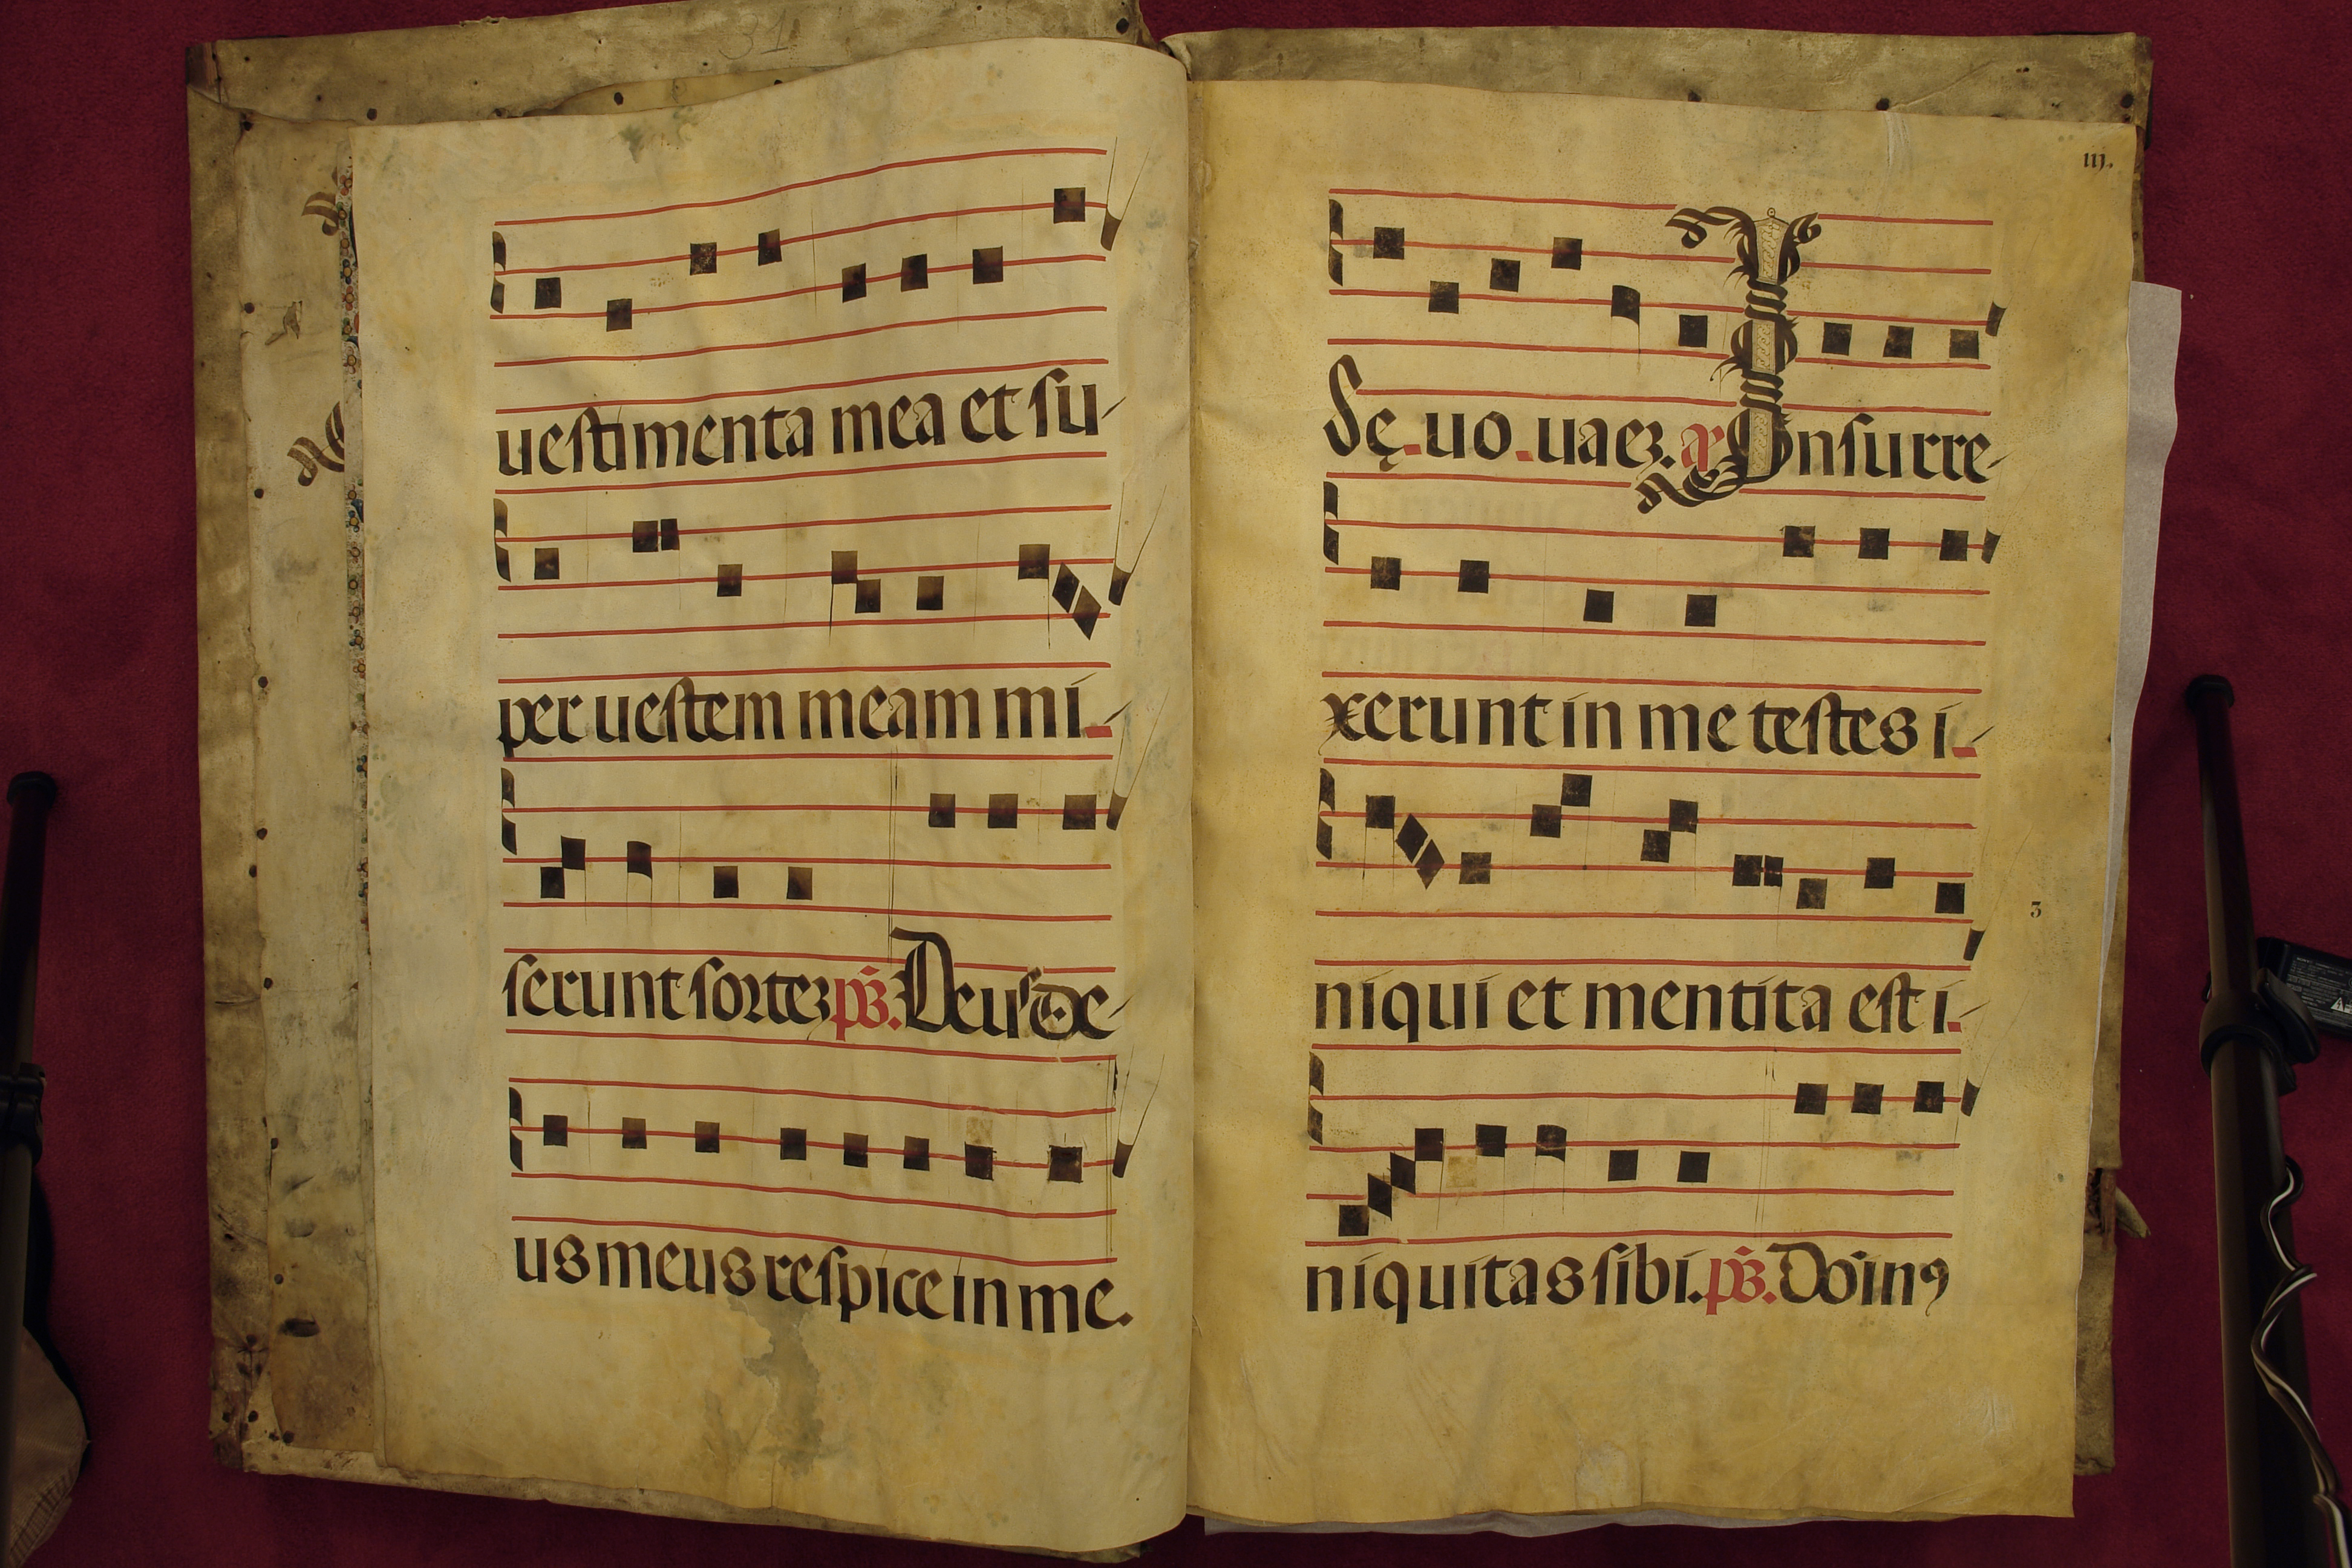 31
uestimenta mea et su-
per uestem meam mi-
serunt sortez ps. Deus de-
us meus respice in me.
iij.
Sę.uo.uaez. a Insurre-
xerunt in me testes i-
3
niqui et mentita est i-
niquitas sibi. ps. Do in9